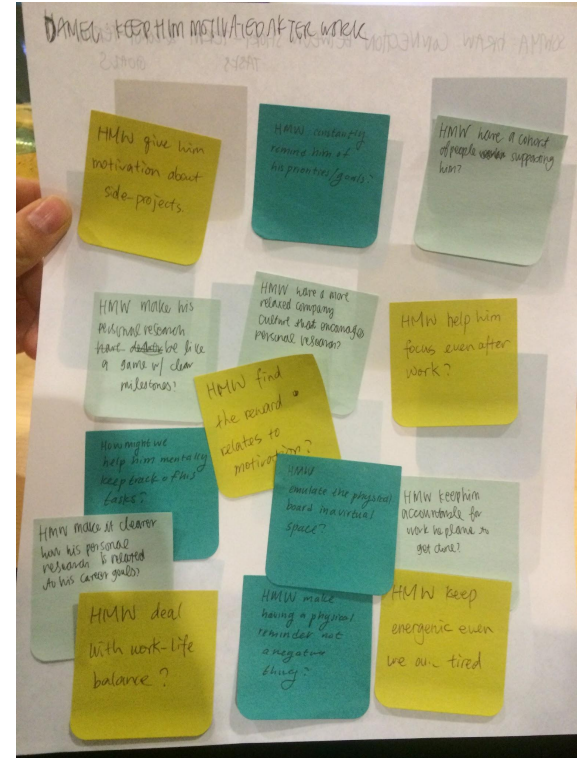 DANIEL KEEP HIM MOTIVATED AFTER WORK
TASKS
GOALS
HMW give him
motivation about
side-projects.
HMW constantly
remind him of
his priorities/goals?
HMW have a cohort
of people supporting
him?
HMW make his
personal research
be like
a game w/ clear
milestones?
HMW have a more
relaxed company
culture that encourages
personal research?
HMW help him
focus even after
work?
HMW find
the reward
relates to
motivation?
How might we
help him mentally
keep track of his
tasks?
HMW
emulate the physical
board in a virtual
space?
HMW keep him
accountable for
work he plans to
get done?
HMW make it clearer
how his personal
research is related
to his career goals?
HMW deal
with work-life
balance?
HMW make
having a physical
reminder not
a negative
thing?
HMW keep
energenic even
we tired